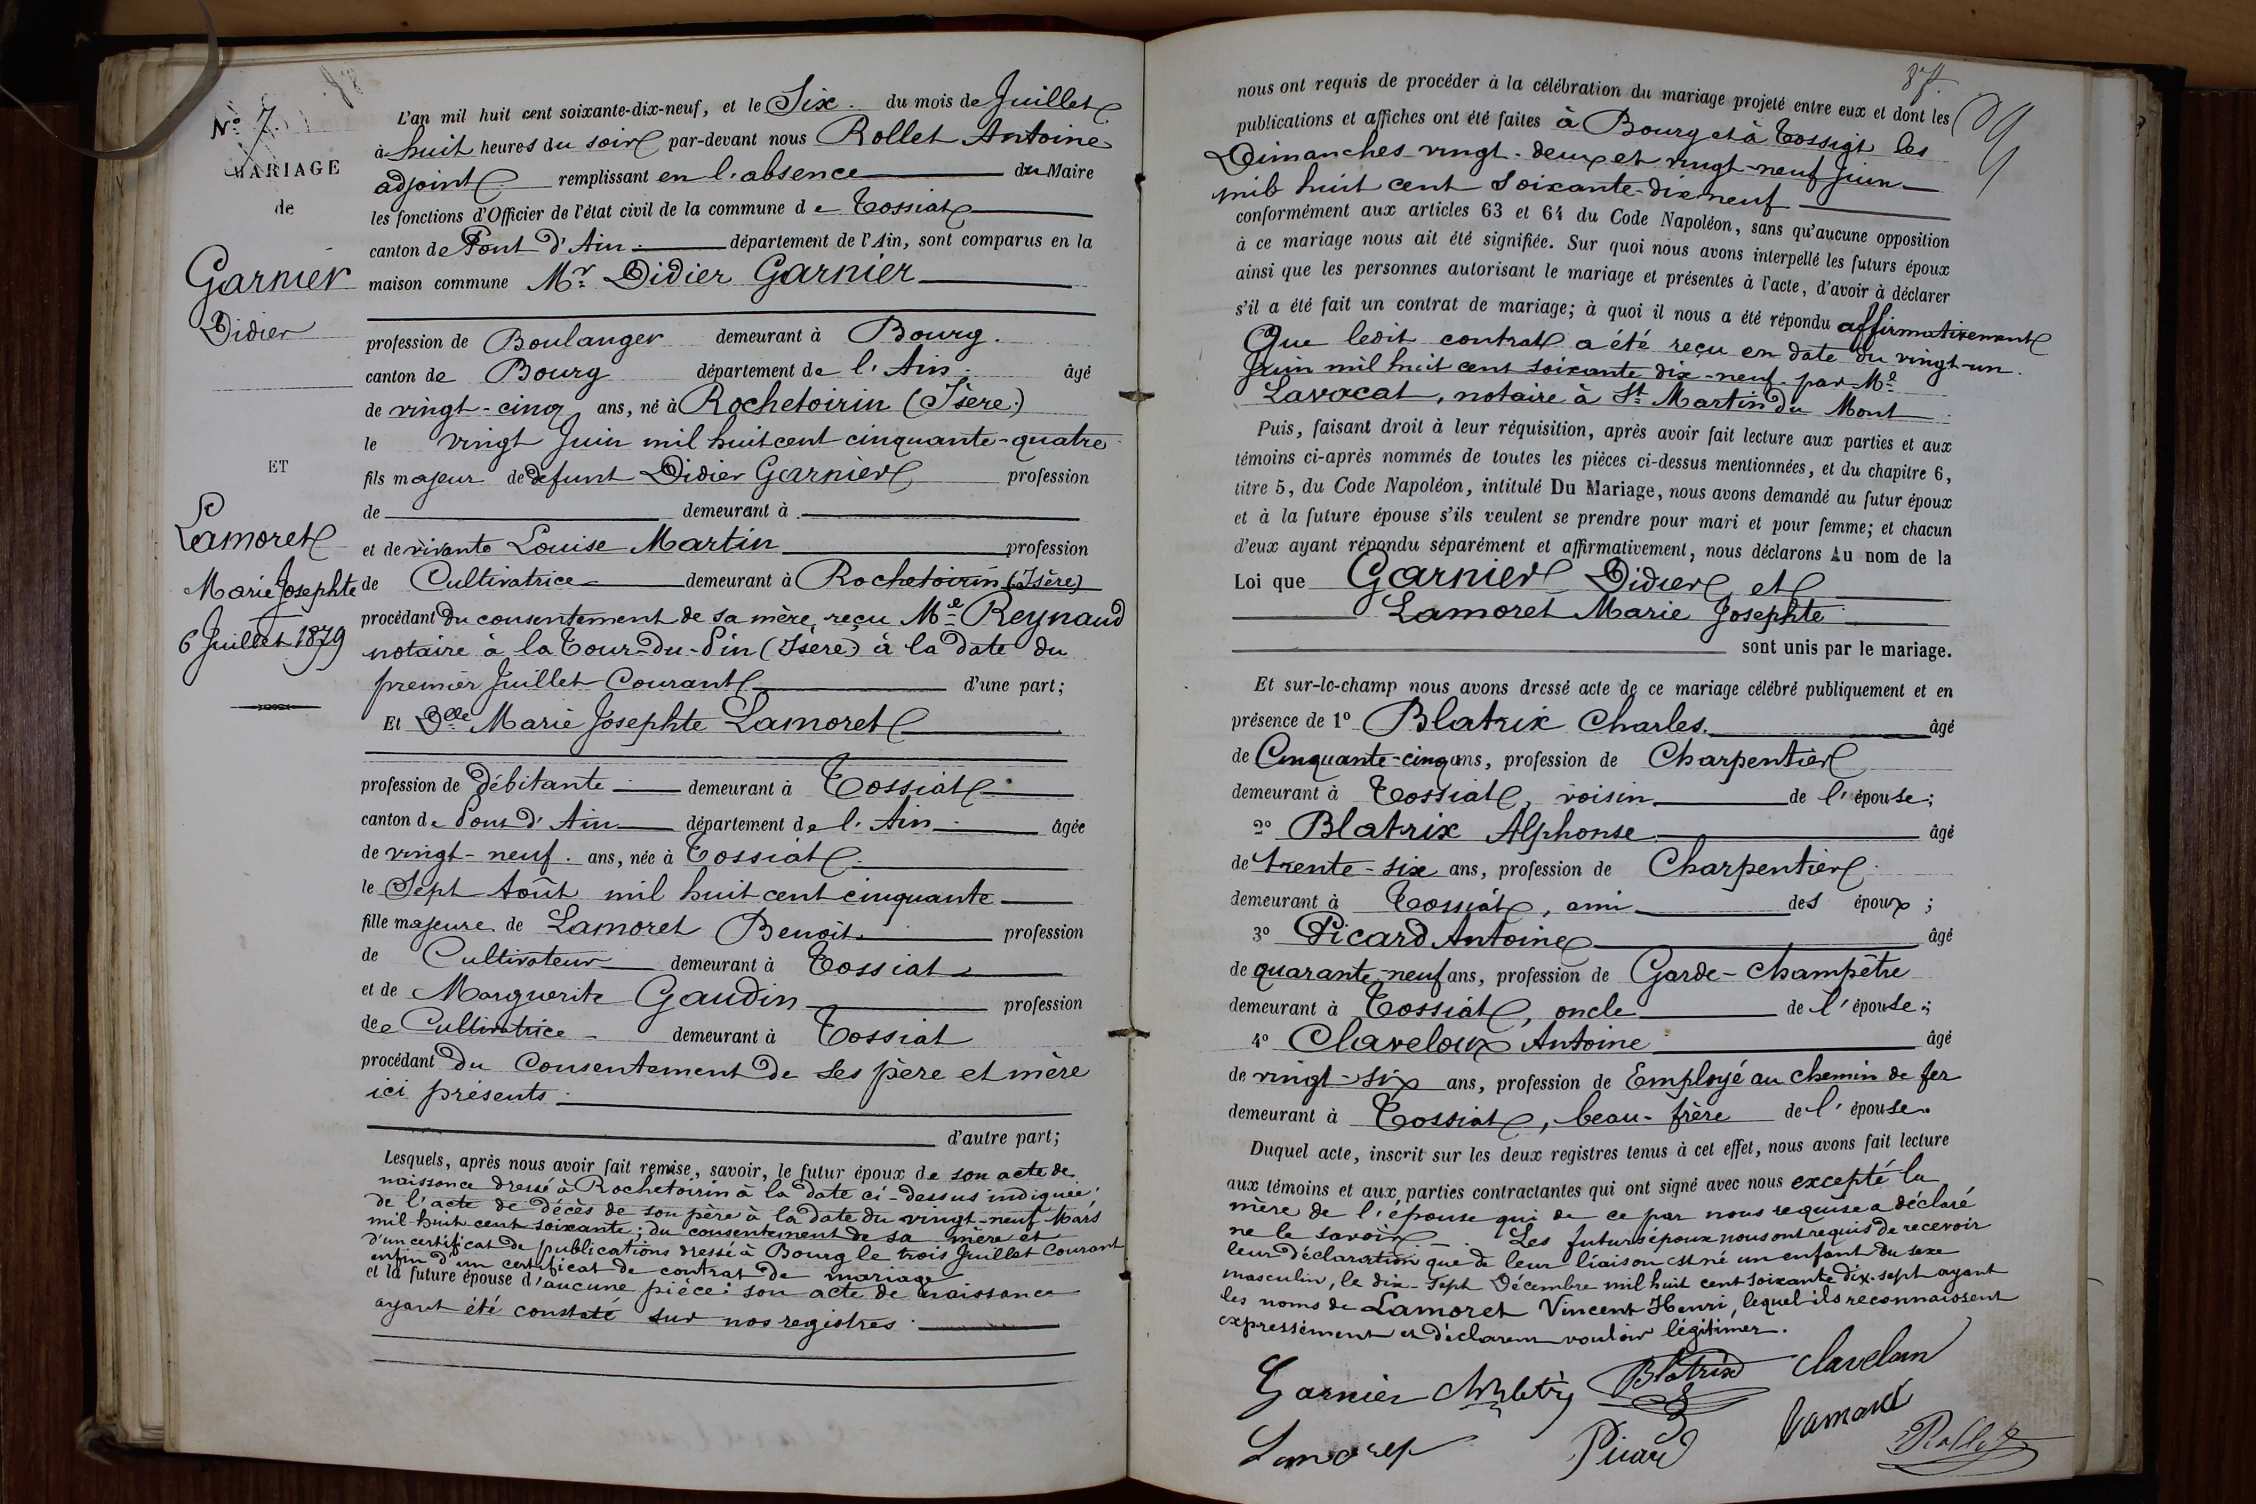 N° 7
MARIAGE
de
Garnier
Didier
ET
Lamoret
Marie Josephte
6 Juillet 1879
L'an mil huit cent soixante-dix-neuf, et le Six du mois de Juillet
à huit heures du soir par-devant nous Rollet Antoine
adjoint remplissant en l'absence du Maire
les fonctions d'Officier de l'état civil de la commune de Tossiat
canton de Pont d'Ain département de l'Ain, sont comparus en la
maison commune Mr Didier Garnier
profession de Boulanger demeurant à Bourg.
canton de Bourg département de l'Ain. âgé
de vingt-cinq ans, né à Rochetoirin (Isère)
le vingt Juin mil huit cent cinquante-quatre
fils majeur de defunt Didier Garnier profession
de demeurant à
et de vivante Louise Martin profession
de Cultivatrice demeurant à Rochetoirin (Isère)
procédant du consentement de sa mère, reçu Me Reynaud
notaire à la Tour-du-Pin (Isère) à la date du
premier Juillet Courant d'une part;
Et Delle Marie Josephte Lamoret
profession de débitante demeurant à Tossiat
canton de Pont d'Ain département de l'Ain âgée
de vingt-neuf. ans, née à Tossiat
le Sept Août mil huit cent cinquante
fille majeure de Lamoret Benoit profession
de Cultivateur demeurant à Tossiat
et de Marguerite Gaudin profession
de Cultivatrice demeurant à Tossiat
procédant du Consentement de ses père et mère
ici présents.
d'autre part;
Lesquels, après nous avoir fait remise, savoir, le futur époux de son acte de
naissance dressé à Rochetoirin à la date ci-dessus indiquée;
de l'acte de décès de son père à la date du vingt-neuf Mars
mil huit cent soixante; du consentement de sa mère et
d'un certificat de publications dressé à Bourg le trois Juillet Courant
enfin d'un certificat de contrat de mariage
et la future épouse d'aucune pièce: son acte de naissance
ayant été constaté sur nos registres.
87.
nous ont requis de procéder à la célébration du mariage projeté entre eux et dont les
publications et affiches ont été faites à Bourg et à Tossiat les
Dimanches vingt-deux et vingt-neuf Juin
mil huit cent soixante-dix neuf
conformément aux articles 63 et 64 du Code Napoléon, sans qu'aucune opposition
à ce mariage nous ait été signifiée. Sur quoi nous avons interpellé les futurs époux
ainsi que les personnes autorisant le mariage et présentes à l'acte, d'avoir à déclarer
s'il a été fait un contrat de mariage; à quoi il nous a été répondu affirmativement
Que ledit contrat a été reçu en date du vingt-un
Juin mil huit cent soixante dix-neuf par Me
Lavocat, notaire à St Martin du Mont
Puis, faisant droit à leur réquisition, après avoir fait lecture aux parties et aux
témoins ci-après nommés de toutes les pièces ci-dessus mentionnées, et du chapitre 6,
titre 5, du Code Napoléon, intitulé Du Mariage, nous avons demandé au futur époux
et à la future épouse s'ils veulent se prendre pour mari et pour femme; et chacun
d'eux ayant répondu séparément et affirmativement, nous déclarons Au nom de la
Loi que Garnier Didier et
Lamoret Marie Josephte
sont unis par le mariage.
Et sur-le-champ nous avons dressé acte de ce mariage célébré publiquement et en
présence de 1° Blatrix Charles. âgé
de Cinquante-cinq ans, profession de Charpentier
demeurant à Tossiat, voisin de l'épouse;
2° Blatrix Alphonse âgé
de trente-six ans, profession de Charpentier
demeurant à Tossiat, ami des époux;
3° Picard Antoine âgé
de quarante-neuf ans, profession de Garde-Champêtre
demeurant à Tossiat, oncle de l'épouse;
4° Claveloux Antoine âgé
de vingt-six ans, profession de Employé au chemin de fer
demeurant à Tossiat, beau-frère de l'épouse.
Duquel acte, inscrit sur les deux registres tenus à cet effet, nous avons fait lecture
aux témoins et aux parties contractantes qui ont signé avec nous excepté la
mère de l'épouse qui de ce par nous requise a déclaré
ne le savoir. Les futurs époux nous ont requis de recevoir
leur déclaration que de leur liaison est né un enfant du sexe
masculin, le dix-sept Décembre mil huit cent soixante dix-sept ayant
les noms de Lamoret Vincent Henri, lequel ils reconnaissent
expressément et déclarent vouloir légitimer.
Garnier Blatrix
Picard